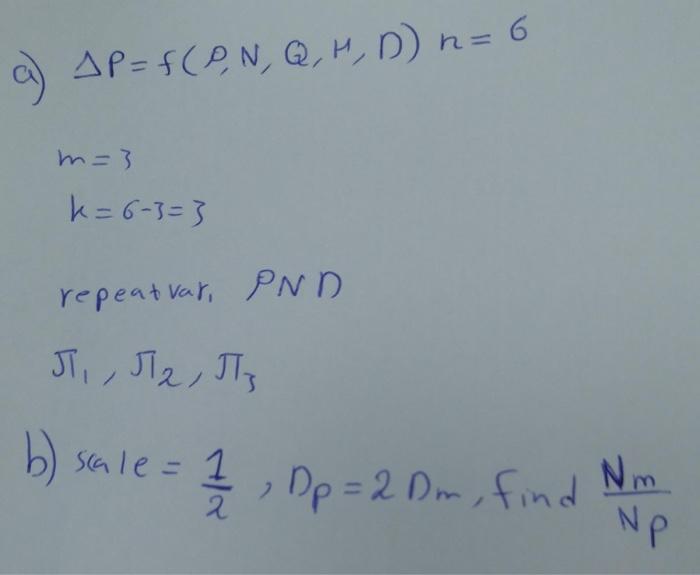 a) ΔP = f(ρ, N, Q, H, D) n = 6
m = 3
k = 6-3 = 3
repeat var. ρ N D
π₁, π₂, π₃
b) scale = 1/2, Dp = 2 Dm, find Nm/Np